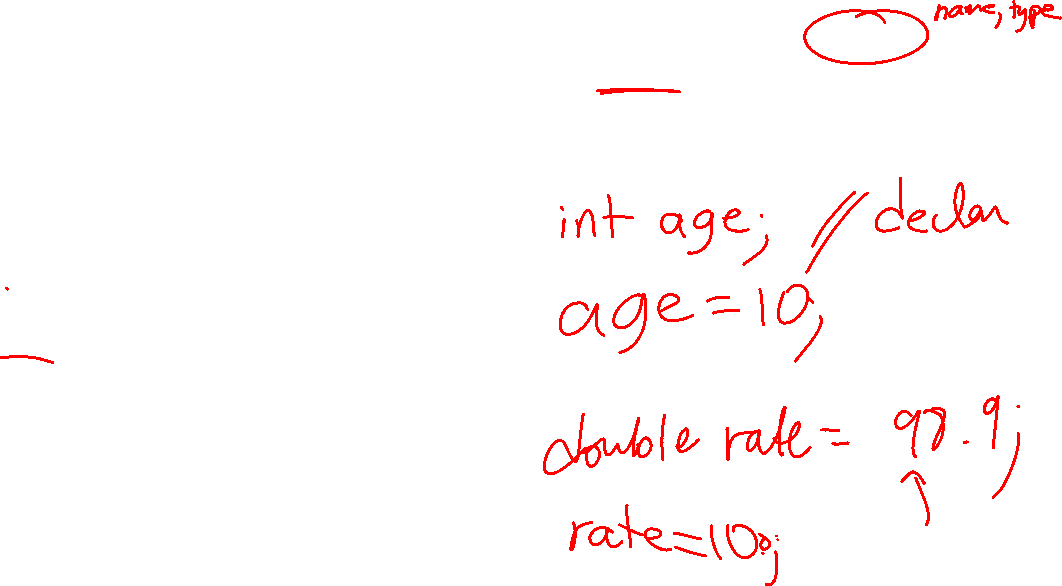 name, type
int age; // declar
age = 10;
double rate = 98.9;
rate = 100;